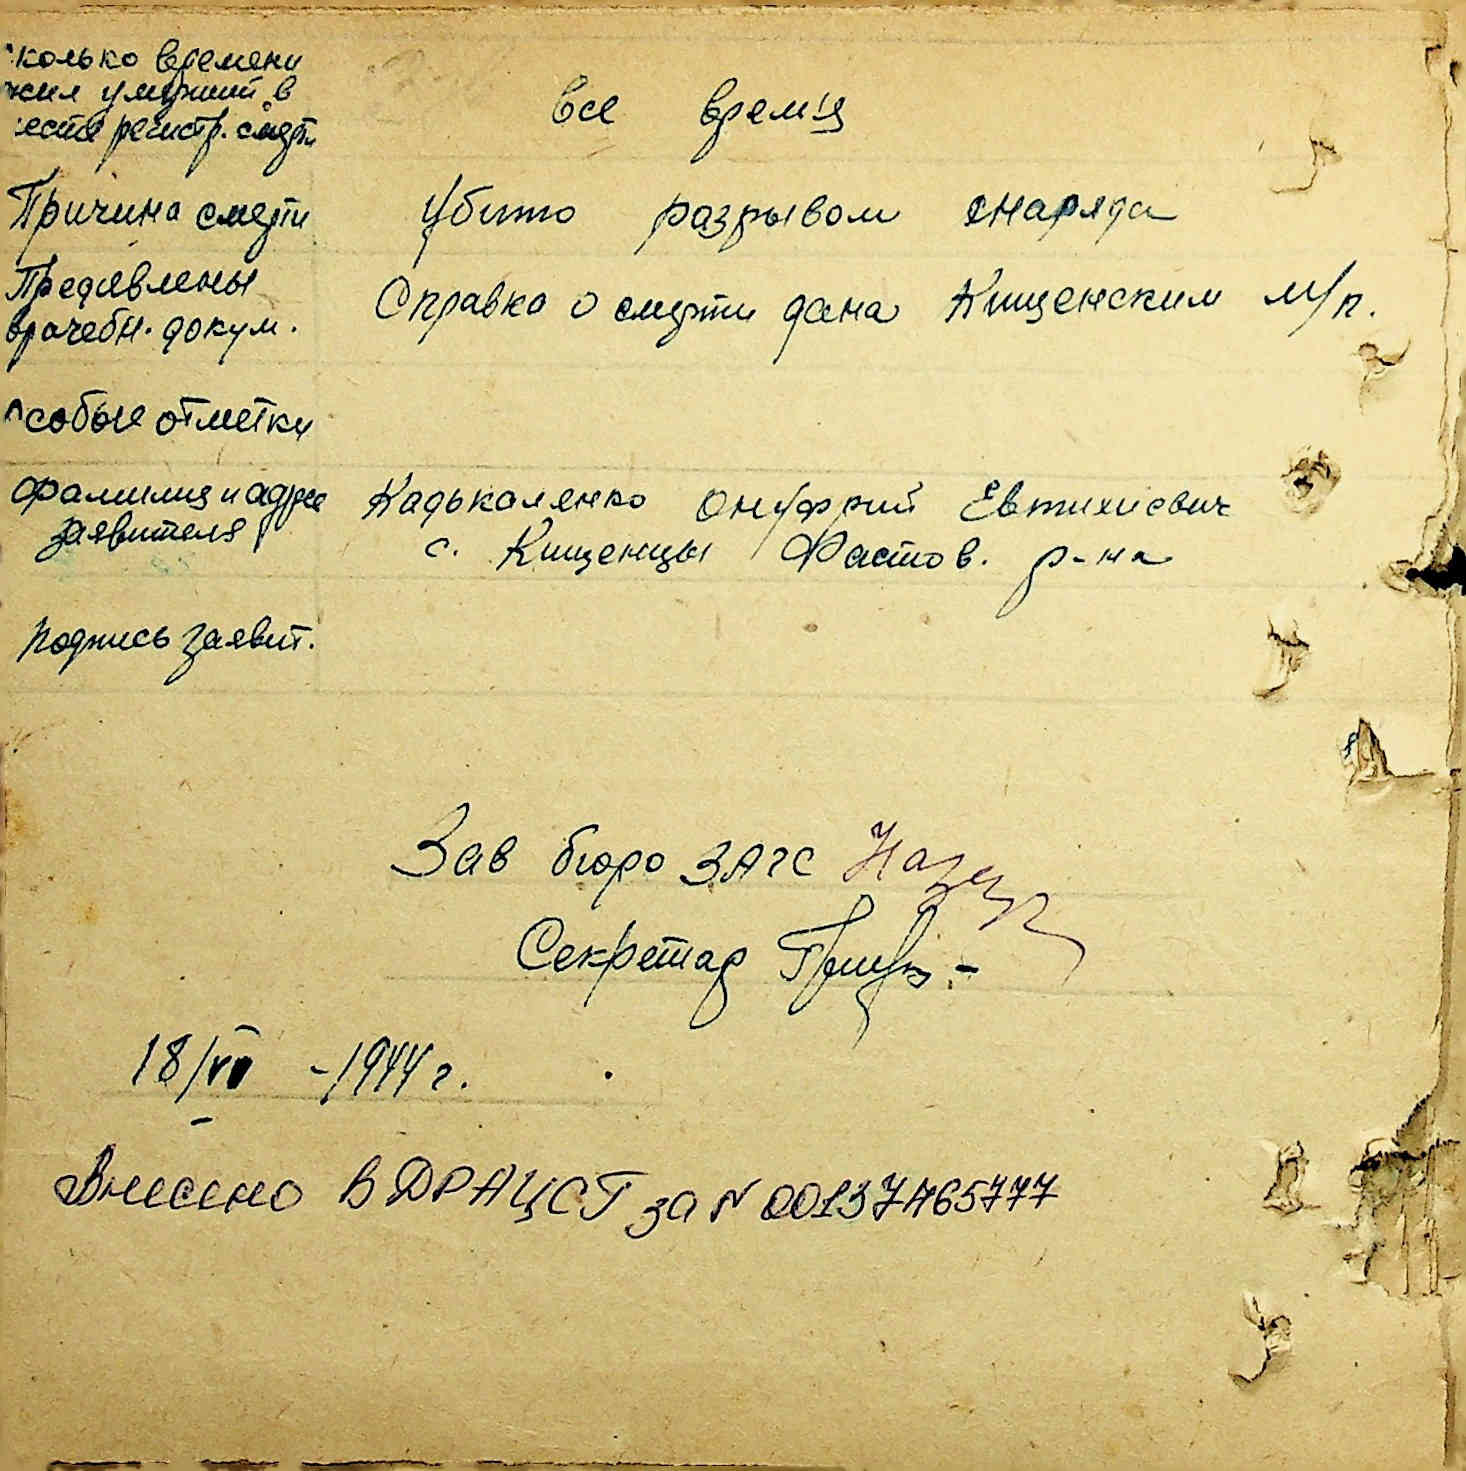 Сколько времени
жил умерший в
месте регистр. смерти
все время
Причина смерти
Убито разрывом снаряда
Предявлены
врачебн. докум.
Справка о смерти дана Кищенским м/п.
Особые отметки
Фамилия и адрес
заявителя
Кадькаленко Онуфрий Евтихиевич
с. Кищенцы Фастов. р-на
Подпись заявит.
Зав бюро ЗАГС
Секретар
18/VII -1944 г.
Внесено в ДРАЦСГ за № 00137465777